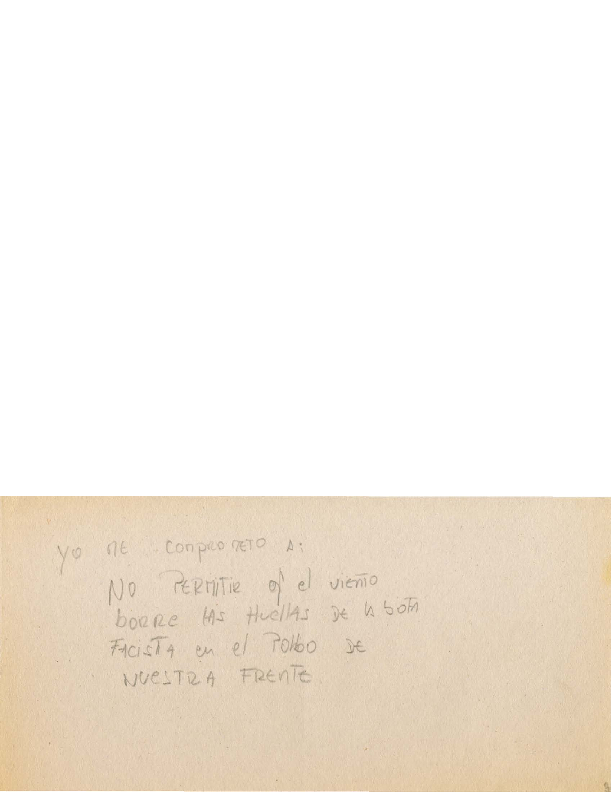 YO ME COMPROMETO A:
NO PERMITIR q' el viento
borre LAS HuellAS DE LA bOTA
FACISTA en el POlbO DE
NUESTRA FRENTE